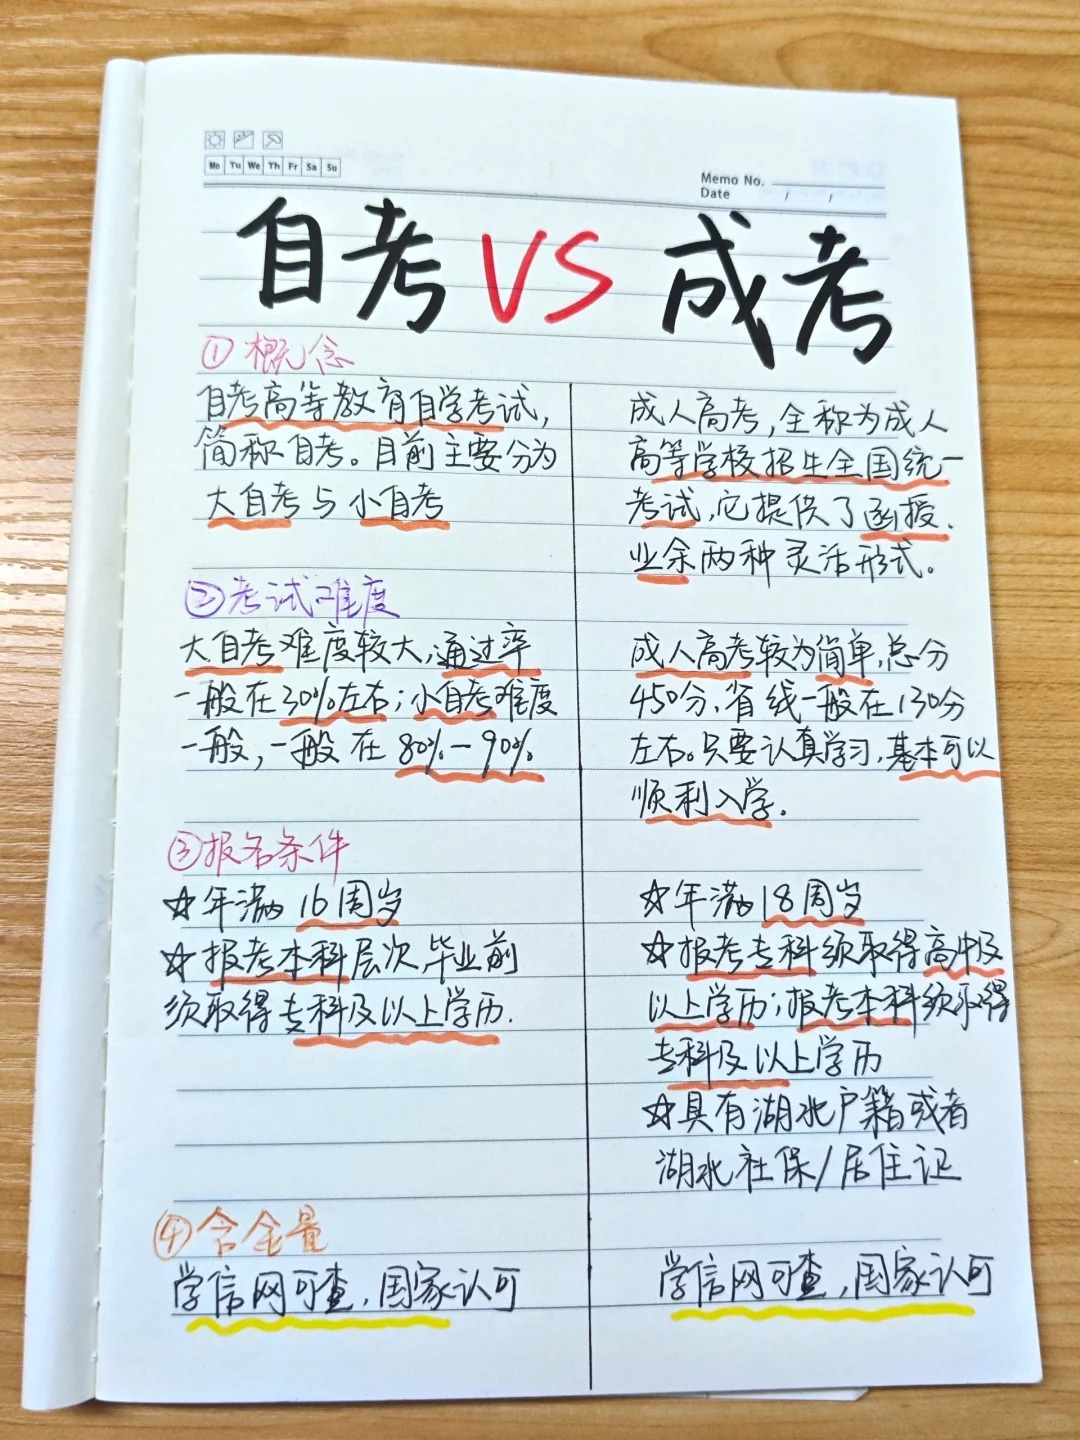 Mo Tu We Th Fr Sa Su
Memo No.
Date / /
自考 VS 成考
①概念
自考高等教育自学考试,
简称自考。目前主要分为
大自考与小自考
成人高考,全称为成人
高等学校招生全国统一
考试,它提供了函授.
业余两种灵活形式。
②考试难度
大自考难度较大,通过率
一般在30%左右;小自考难度
一般,一般在80%—90%
成人高考较为简单,总分
450分,省线一般在130分
左右。只要认真学习,基本可以
顺利入学.
③报名条件
☆年满16周岁
☆报考本科层次毕业前
须取得专科及以上学历.
☆年满18周岁
☆报考专科须取得高中及
以上学历;报考本科须取得
专科及以上学历
☆具有湖北户籍或者
湖北社保/居住证
④含金量
学信网可查,国家认可
学信网可查,国家认可